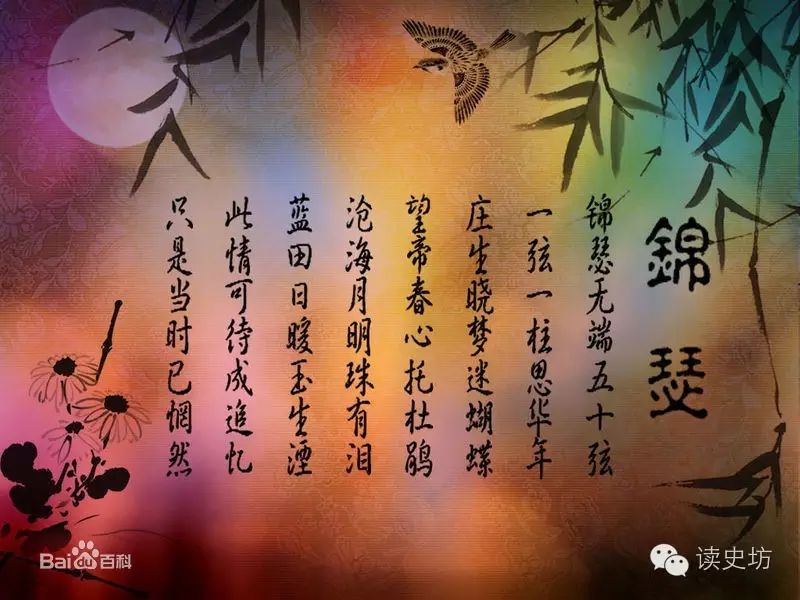 錦瑟
锦瑟无端五十弦
一弦一柱思华年
庄生晓梦迷蝴蝶
望帝春心托杜鹃
沧海月明珠有泪
蓝田日暖玉生湮
此情可待成追忆
只是当时已惘然
Bai du 百科
读史坊